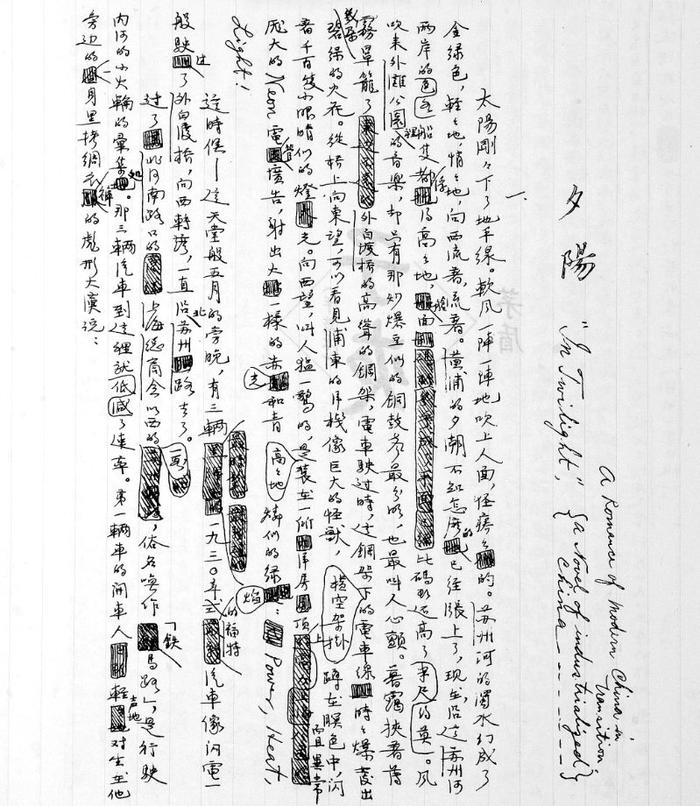 A Romance of modern China in transition;
夕陽 "In Twilight", { a Novel of industrialized China------ }
一、
太陽剛々下了地平線。軟風一陣一陣地吹上人面,怪癢々的。蘇州河的濁水幻成了
金綠色,輕々地,悄々地,向西流着,流着。黃浦的夕潮不知怎麼的已經漲上了,現在沿這蘇州河
兩岸的各色船隻都浮得高高地,艙面比碼頭還高了半尺的樣。風
吹來外灘公園的音樂,却只有那炒爆豆似的銅鼓聲最分明,也最叫人心顫。暮靄挾着薄
霧罩籠了外白渡橋的高聳的鋼架,電車駛過時,這鋼架下的電車線時時爆發出
碧綠的火花。從橋上向東望,可以看見浦東的洋棧像巨大的怪獸,橫空架掛蹲在暝色中,閃
着千百隻小眼睛似的燈光。向西望,叫人猛一驚的,是高々地裝在一所洋房頂上而且異常
龐大的 Neon 電管廣告,射出火一樣的赤光和青燐似的綠焰:Power, Heat,
Light!
這時候——這天堂般五月的傍晚,有三輛一九三〇年式的福特汽車像閃電一
般駛過了外白渡橋,向西轉彎,一直沿北蘇州路去了。
過了北河南路口的上海總商會以西的一段,俗名喚作「鐵馬路」,是行駛
內河的小火輪的彙集處。那三輛汽車到這裡就低減了速率。第一輛車的開車人輕聲地對坐在他
旁边的身黑拷綢衣褲的彪形大漢說: